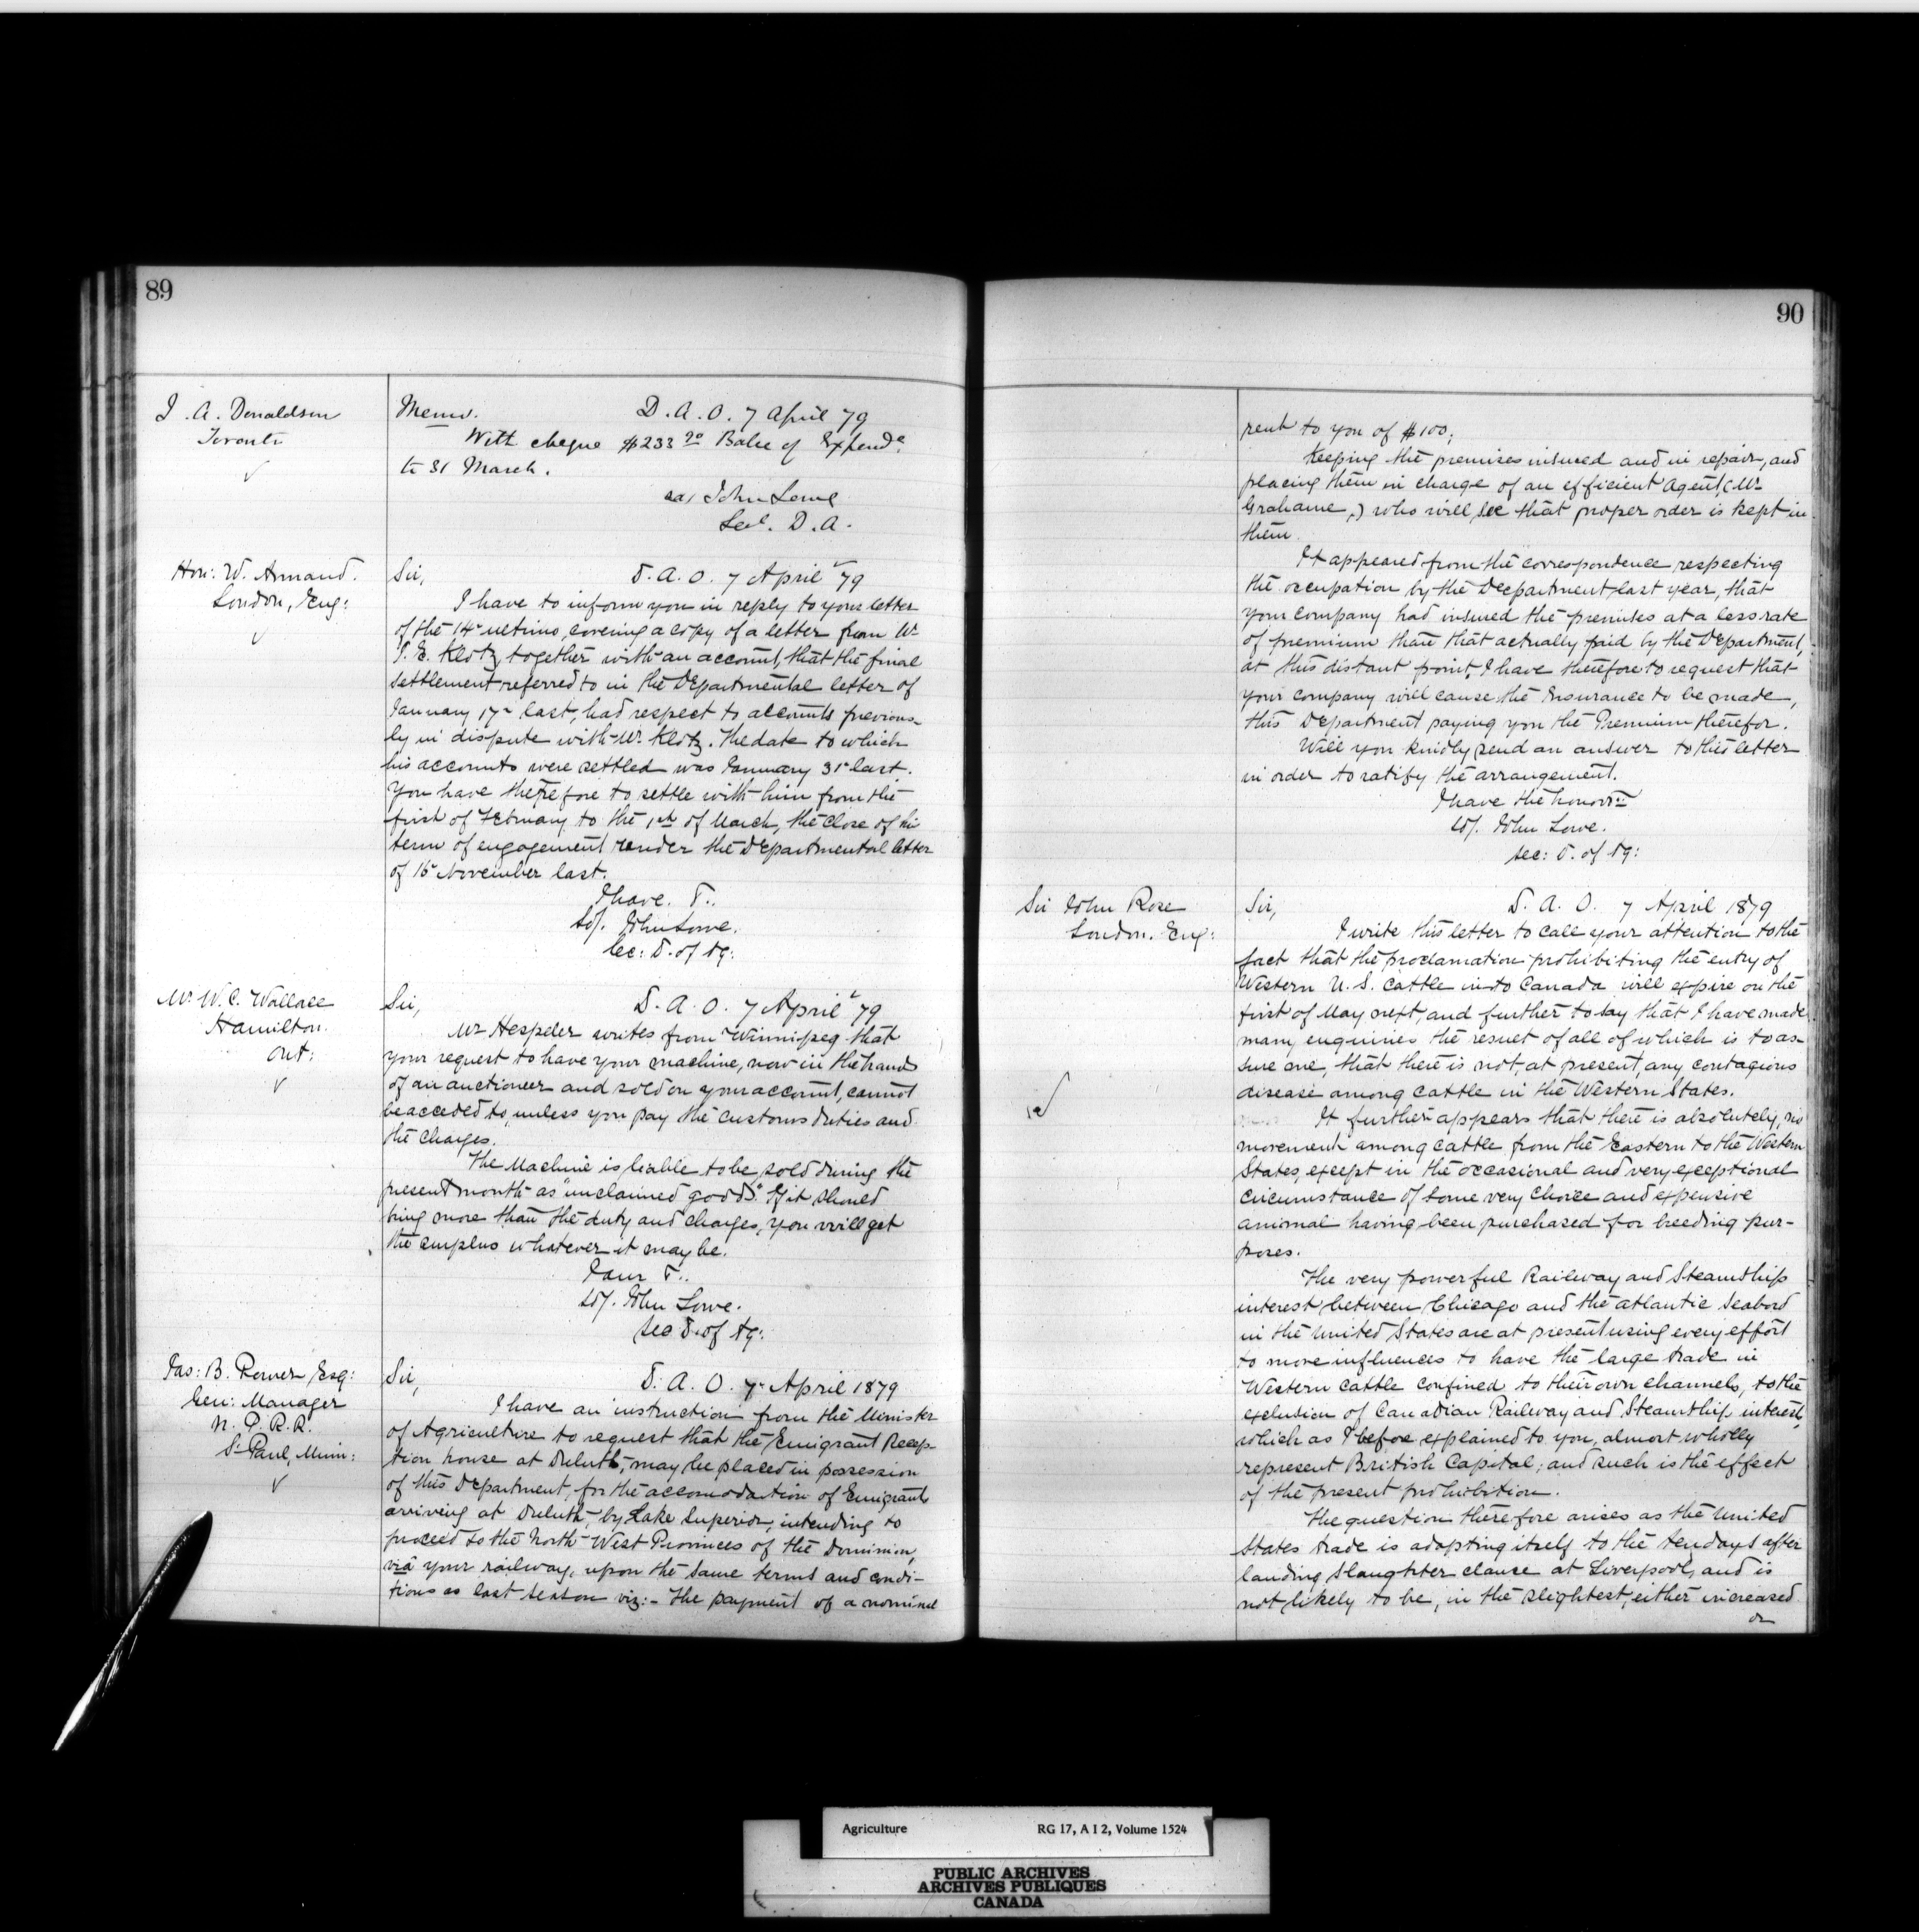 89
J. A. Donaldson
Toronto
Memo. D. A. O. 7 April 79
With cheque $233 20 Balce of Expende
to 31 March.
John Lowe
Sec. D. A.
Hon: W. Annand.
London, Eng:
Sir, D. A. O. 7 April 79
I have to inform you in reply to your letter
of the 14 ultimo, covering a copy of a letter from Mr
E. Klotz, together with an account, that the final
settlement referred to in the Departmental letter of
January 17 last, had respect to accounts previous-
ly in dispute with Mr. Klotz. The date to which
his accounts were settled was January 31 last.
You have therefore to settle with him from the
first of February to the of March, the close of his
term of engagement under the Departmental letter
of November last.
I have &.
John Lowe.
Sec: D. of Ag:
Mr W. C. Wallace
Hamilton.
Ont:
Sir, D. A. O. 7 April 79
Mr Hespeler writes from Winnipeg that
your request to have your machine, now in the hands
of an auctioneer and sold on your account, cannot
be acceded to, unless you pay the customs duties and
the charges.
The Machine is liable to be sold during the
present month as "unclaimed goods". If it should
bring more than the duty and charges, you will get
the surplus whatever it may be.
I am &.
John Lowe.
Sec D. of Ag:
Jas: B. Power Esq:
Gen: Manager
N. P. R. R.
St Paul, Minn:
Sir, D. A. O. 7 April 1879
I have an instruction from the Minister
of Agriculture to request that the Emigrant Recep-
tion house at Duluth, may be placed in possession
of this Department, for the accomodation of Emigrants
arriving at Duluth, by Lake Superior, intending to
proceed to the North West Provinces of the Dominion,
via your railway, upon the same terms and condi-
tions as last season viz:- the payment of a nominal
90
rent to you of $100;
Keeping the premises insured and in repair, and
placing them in charge of an efficient Agent, (Mr
Grahame,) who will see that proper order is kept in
them.
It appeared from the correspondence respecting
the occupation by the Department last year, that
your company had insured the premises at a less rate
of premium than that actually paid by the Department,
at this distant point, I have therefore to request that
your company will cause the Insurance to be made,
this Department paying you the Premium therefor.
Will you kindly send an answer to this letter
in order to ratify the arrangement.
I have the honor
John Lowe.
Sec: D. of Ag:
Sir John Rose
London. Eng:
Sir, D. A. O. 7 April 1879
I write this letter to call your attention to the
fact that the proclamation prohibiting the entry of
Western U. S. Cattle into Canada will expire on the
first of May next, and further to say that I have made
many enquiries the result of all of which is to as-
sure me, that there is not, at present, any contagious
disease among cattle in the Western States.
It further appears that there is absolutely, no
movement among cattle from the Eastern to the Western
States, except in the occasional and very exceptional
circumstance of some very choice and expensive
animal having been purchased for breeding pur-
poses.
The very powerful Railway and Steamship
interest between Chicago and the atlantic seabord
in the United States are at present using every effort
to move influences to have the large trade in
Western cattle confined to their own channels, to the
exclusion of Canadian Railway and Steamship interest,
which as I before explained to you, almost wholly
represent British Capital; and such is the effect
of the present prohibition.
The question therefore arises as the United
States trade is adapting itself to the ten days after
landing slaughter clause at Liverpool, and is
not likely to be, in the slightest, either increased
or
Agriculture RG 17, A I 2, Volume 1524
PUBLIC ARCHIVES
ARCHIVES PUBLIQUES
CANADA